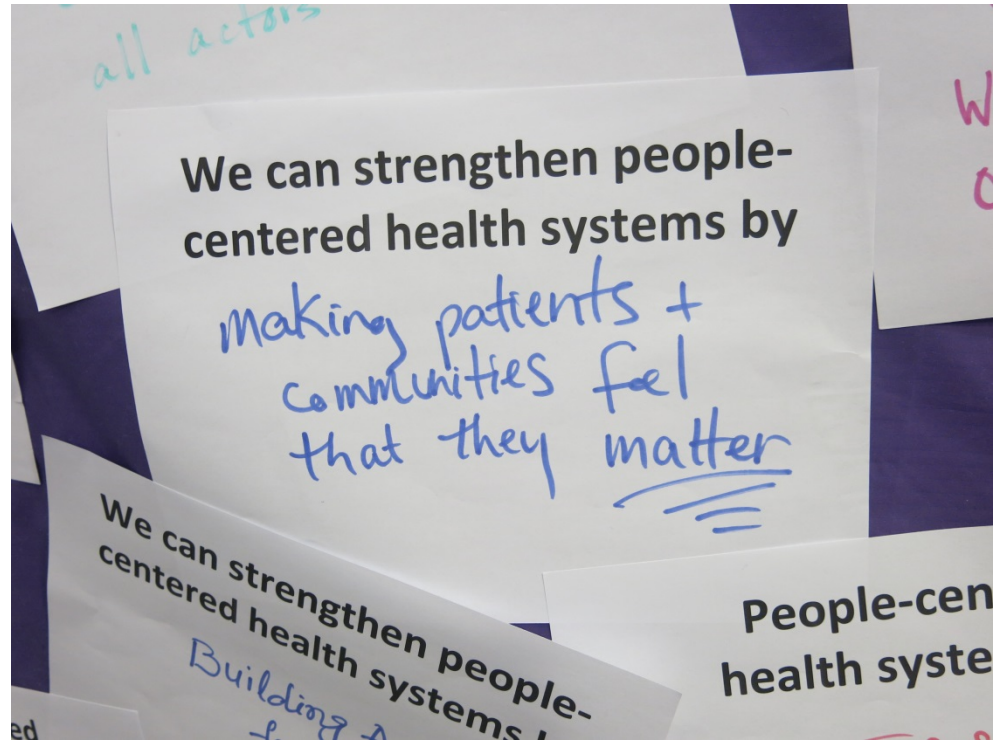 all actors
We can strengthen people-
centered health systems by
making patients +
communities feel
that they matter
We can strengthen people-
centered health systems
Building
People-cen
health syste
ed